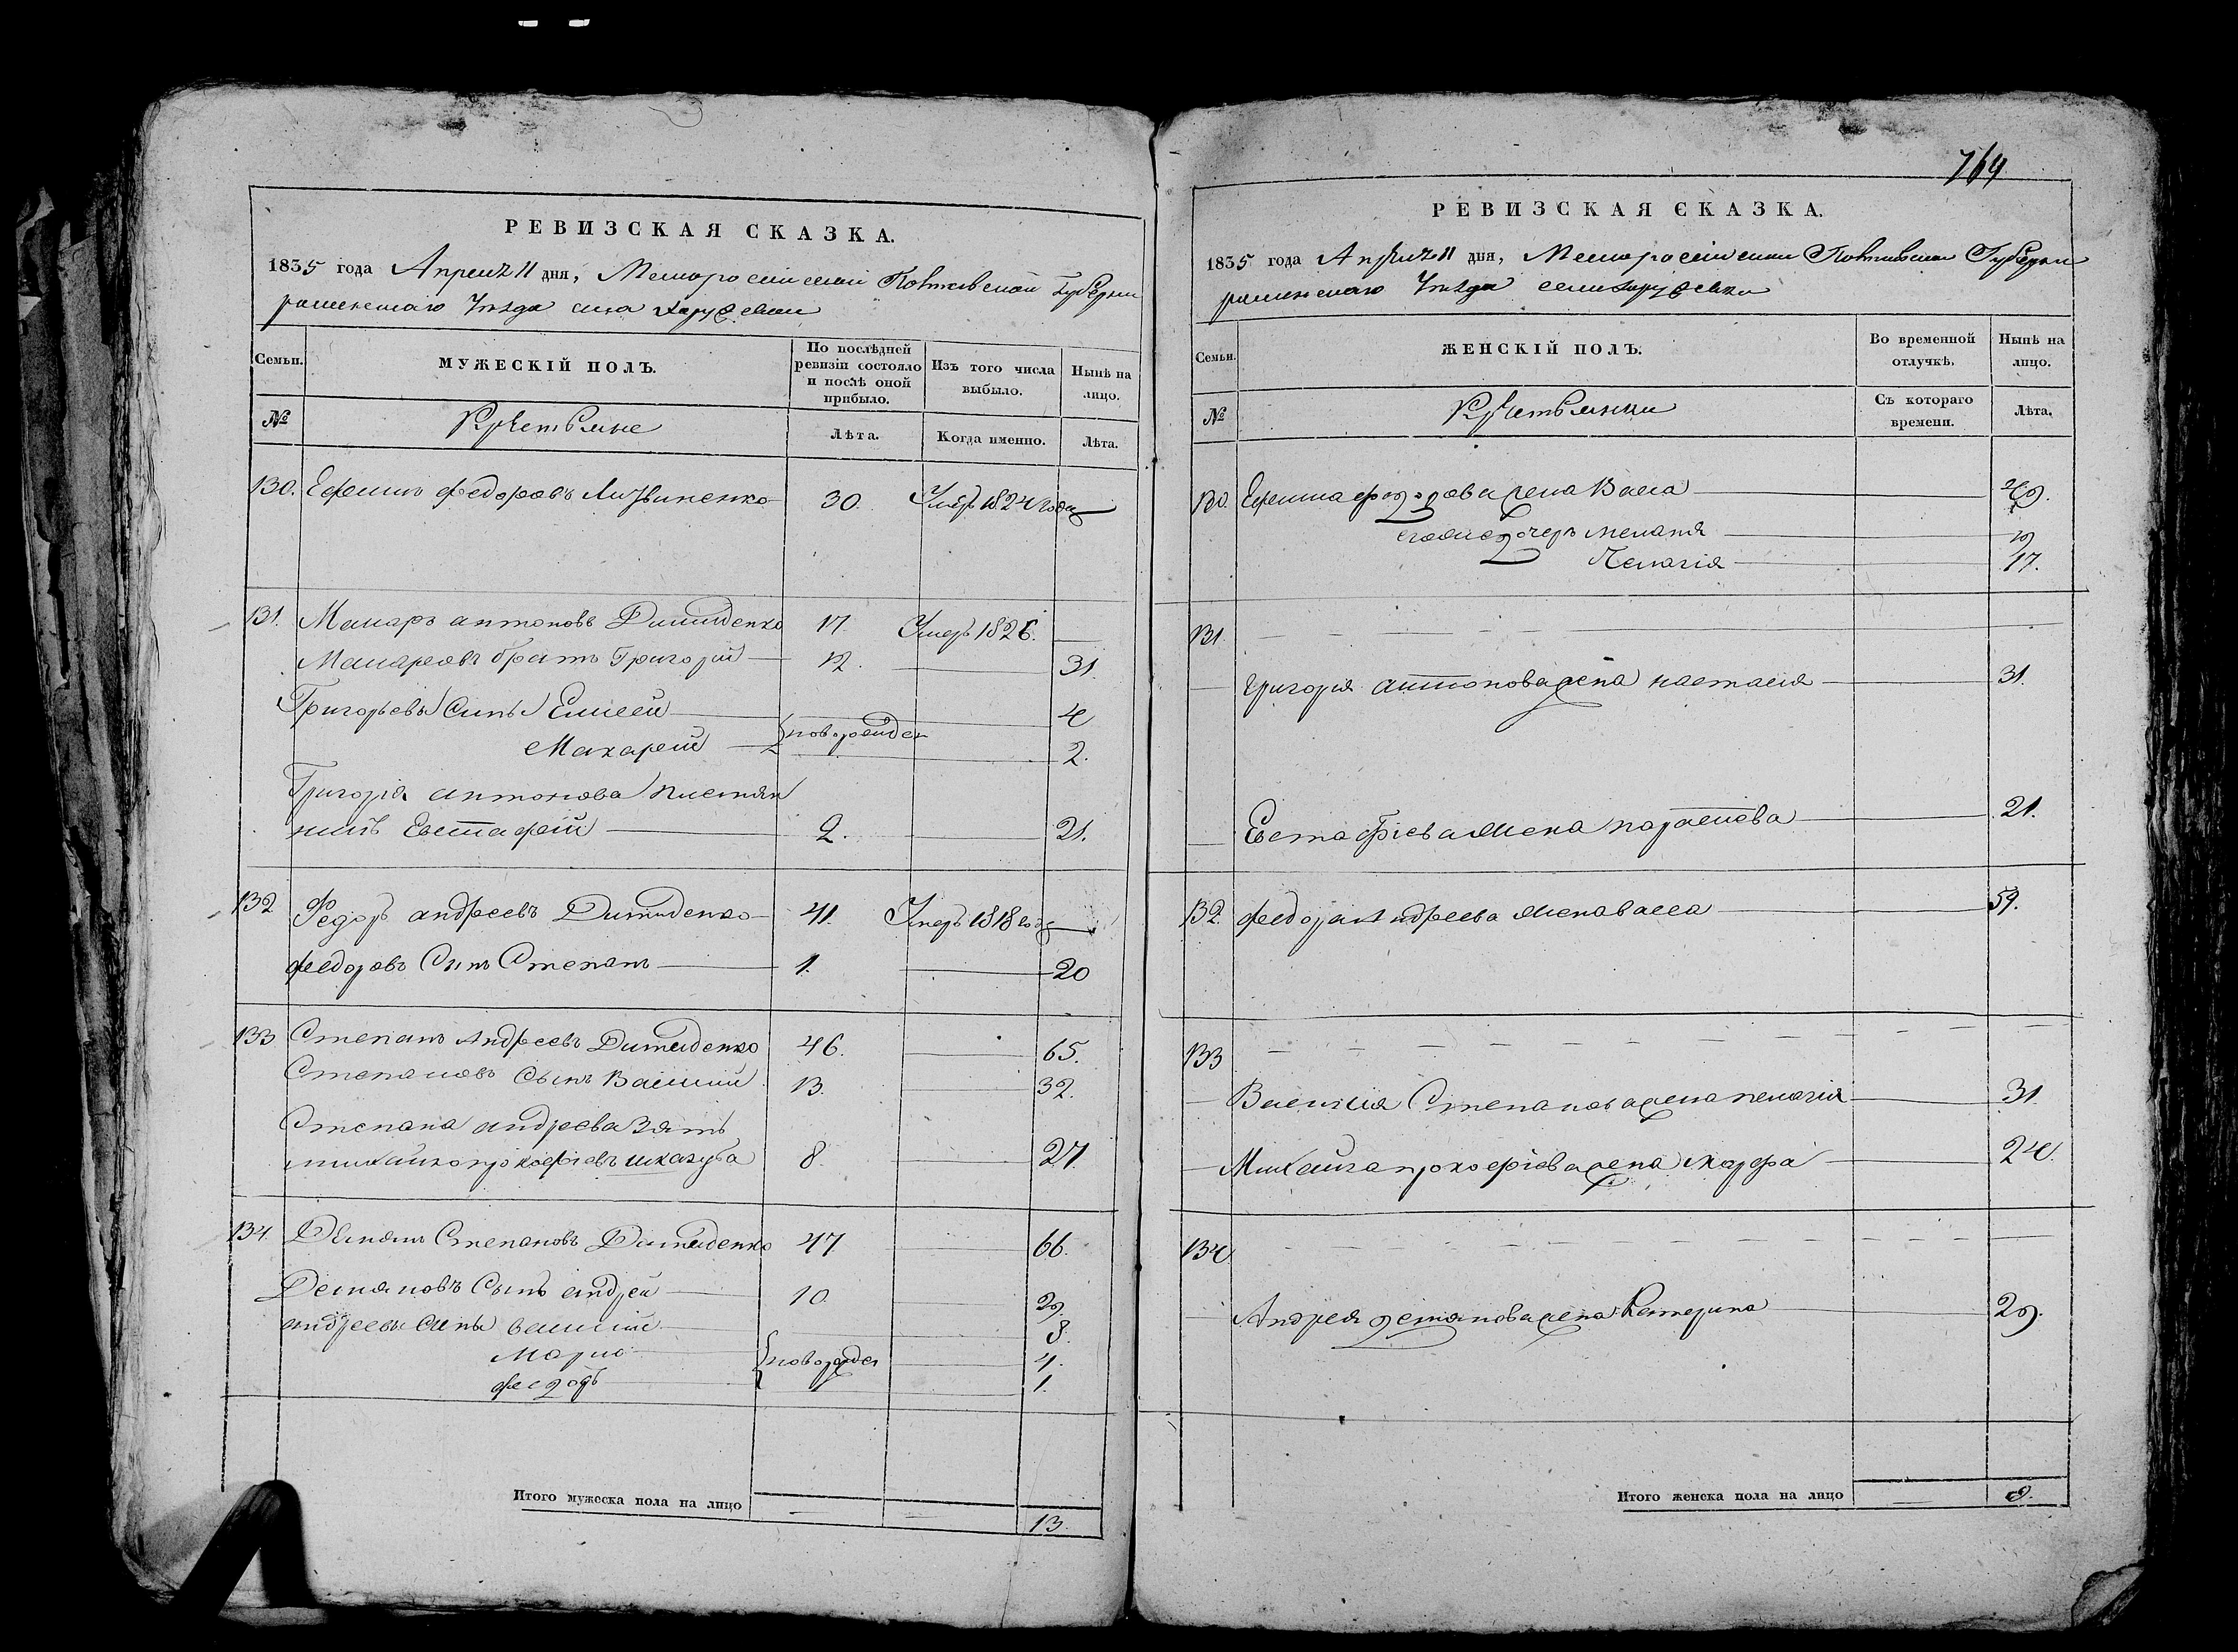 764
РЕВИЗСКАЯ СКАЗКА.
1835 года Апреля 11 дня, Малоросійской Полтавской Губерніи
роменскаго Уезда села
Семьи.
МУЖЕСКІЙ ПОЛЪ.
По послѣдней ревизіи состояло и послѣ оной прибыло.
Изъ того числа выбыло.
Нынѣ на лицо.
№
Крестьяне
Лѣта.
Когда именно.
Лѣта.
130. Ефимъ Федоровъ Литвиненко 30. Умеръ 1824 года
131. Макаръ антоновъ Димиденко 17. Умеръ 1826.
Макаровъ братъ Григорій 12. 31.
Григорьевы Сины Елисей 4
Макарей новорожден 2.
Григорія антонова племян
никъ Евстафей 2. 21.
132 Федоръ андреевъ Димиденко 41. Умеръ 1818 года
федоровъ Синъ Степанъ 1. 20
133 Степанъ Андреевъ Димиденко 46. 65.
Степановъ Сынъ Василий 13. 32.
Степана андреева Зять
михайло прокофіевъ шказуба 8. 27.
134. Демянъ Степановъ Димиденко 47 66.
Демяновъ Сынъ андрей 10. 29.
андреевы Сины василій 8.
Марко новорожден 4.
федоръ 1.
Итого мужеска пола на лицо
13.
РЕВИЗСКАЯ СКАЗКА.
1835 года Апреля 11 дня, Малоросійской Полтавской Губерніи
роменскаго Уезда села
Семьи.
ЖЕНСКІЙ ПОЛЪ.
Во временной отлучкѣ.
Нынѣ на лицо.
№
Крестьянки
Съ котораго времени.
Лѣта.
130. Ефима федорова жена Васа 49.
дочерь мелания 19
Пелагія 17.
131.
Григорія антонова жена настасія 31.
Евстафіева жена параскева 21.
132. федора Андреева жена васса 59.
133
Василия Степанова жена пелагія 31
Михайла прокофіева жена марфа 24.
134
Андрея демянова жена Катерина 29.
Итого женска пола на лицо
9.